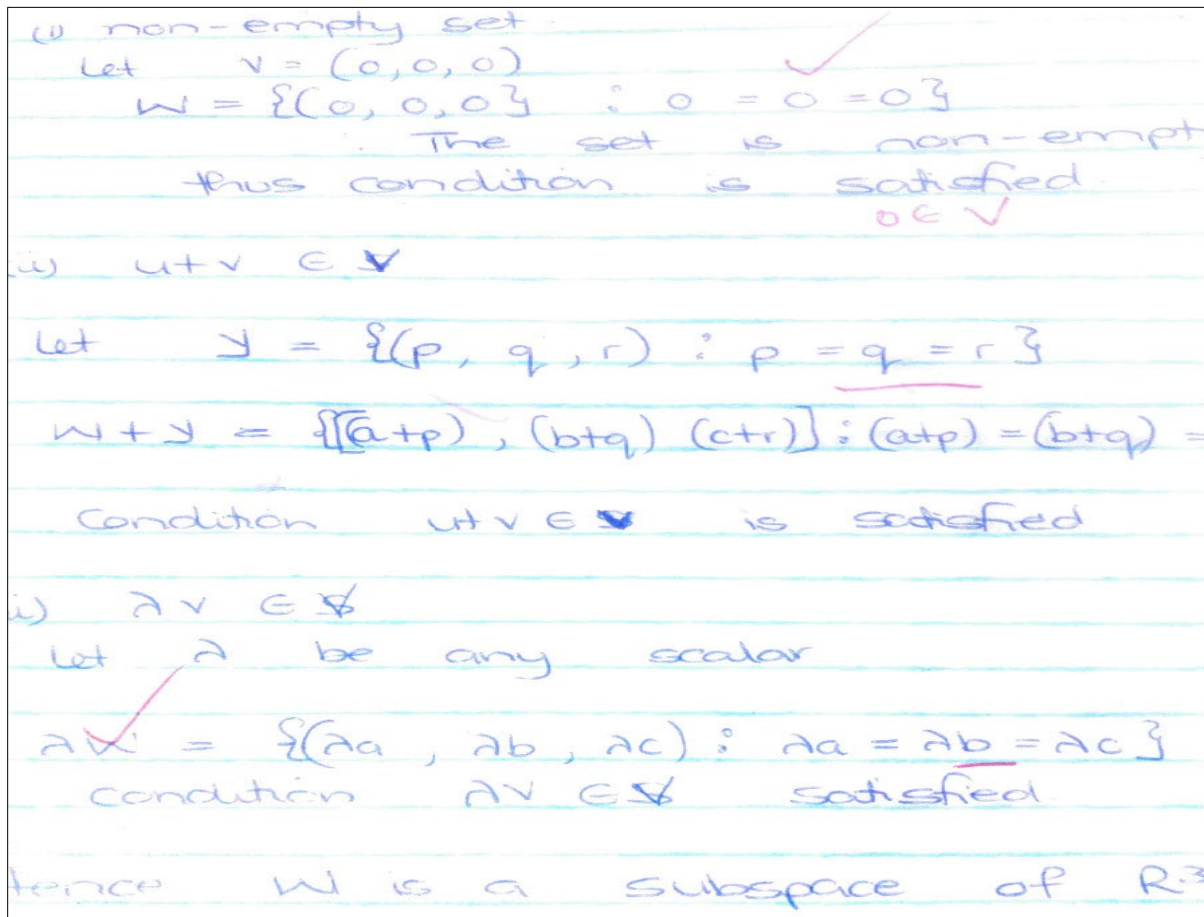 (i) non-empty set
Let v = (0,0,0)
W = {(0, 0, 0} : 0 = 0 = 0}
The set is non-empt
thus condition is satisfied
0 ∈ V
ii) u+v ∈ V
Let y = {(p, q, r) : p = q = r}
W + y = {[(a+p), (b+q) (c+r)] : (a+p) = (b+q) =
Condition u+v ∈ V is satisfied
i) λv ∈
Let λ be any scalar
λW = {(λa, λb, λc) : λa = λb = λc}
condition λv ∈ satisfied
tence W is a subspace of R3